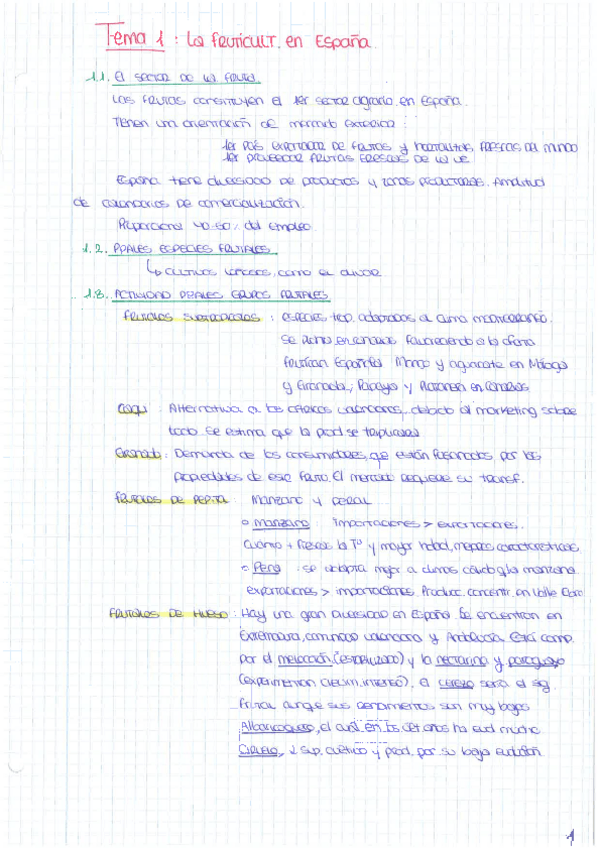 Tema 1 : La FRUTICULT. en España.
1.1. El sector de la fruta.
Las frutas constituyen el 1er sector agrario en España.
Tienen una orientación de mercado exterior :
1er país exportador de frutas y hortalizas frescas del mundo
1er proveedor frutas frescas de la UE
España tiene diversidad de productos y zonas productoras. Amplitud
de calendarios de comercialización.
Proporciona 40-50% del empleo.
1.2. PPALES ESPECIES FRUTALES
↳ cultivos leñosos, como el olivar
1.3. ACTIVIDAD PPALES GRUPOS FRUTALES
FRUTALES SUBTROPICALES : especies trop. adaptadas al clima mediterráneo.
favoreciendo a la oferta
frutícan Española Mango y aguacate en Málaga
y Granada; Papaya y Platanera en Canarias
Caqui : Alternativa a los cítricos valencianos, debido al marketing sobre
todo. Se estima que la prod se
Granado : Demanda de los consumidores, que están fascinados por las
propiedades de ese fruto. El mercado requiere su transf.
FRUTALES DE PEPITA : Manzano y peral
o manzano importaciones > exportaciones.
Cuanto + fresca la Tª y mayor mejores características
o Pera : se adapta mejor a climas cálidos q la manzana
exportaciones > importaciones. Produc. concentr. en Valle Ebro
FRUTALES DE HUESO : Hay una gran diversidad en España. Se encuentran en
Extremadura, comunidad valenciana y Andalucía. Está comp.
por el melocotón (estabilizado) y la nectarina y paraguayo
(experimentan crecim. intenso), el cerezo sería el sig.
frutal aunque sus rendimientos son muy bajos
Albaricoquero, el cual en los últ años ha evol mucho
Ciruelo, ↓ sup. cultivo y prod. por su baja evolución
1